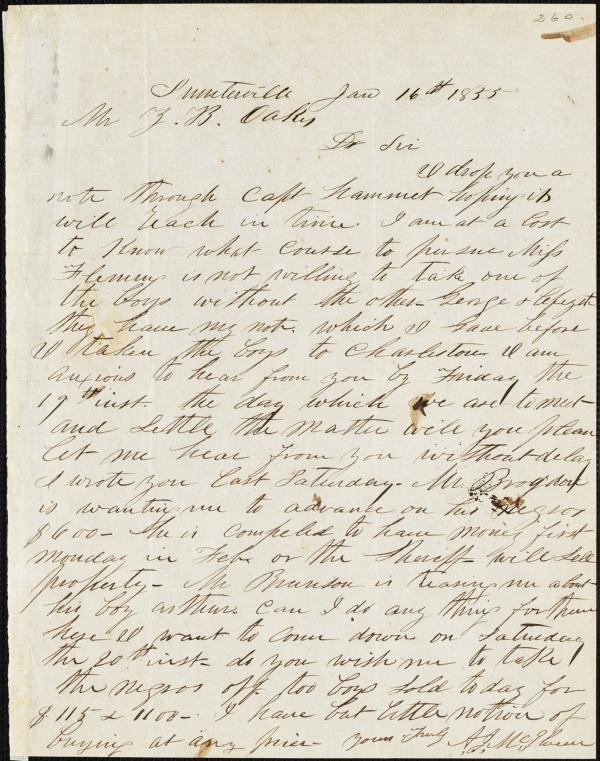 260.
Sumterville Jan 16th 1855
Mr Z. B. Oakes
Dr Sir
I drop you a
note through Capt Hammet hoping it
will reach in time. I am at a lost
to know what course to pursue Miss
Fleming is not willing to take one of
the boys without the other George & Lafayette
they have my note which I gave before
I taken the boys to Charleston I am
anxious to hear from you by Friday the
19th inst. the day which we are to meet
and settle the matter will you please
let me hear from you without delay
I wrote you last Saturday. Mr Brogdon
is wanting me to advance on his negros
$600 - he is compelled to have money first
monday in Feb. or the Sheriff will sell
property - Mr Brunson is teasing me about
his boy arthur. can I do any thing for them
here I want to come down on Saturday
the 20th inst - do you wish me to take
the negros off. too boys sold to day for
$ 115 & 1100 - I have but little notion of
buying at any price yours truly A J McElveen